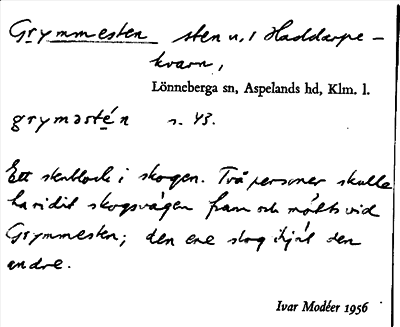 Grymmesten sten n. i Haddarpe-
kvarn,
Lönneberga sn, Aspelands hd, Klm. l.
grymǝsté́n s. 43.
Ett stenblock i skogen. Två personer skulle
ha ridit skogsvägen fram och mötts vid
Grymmesten; den ene slog ihjäl den
andre.
Ivar Modéer 1956